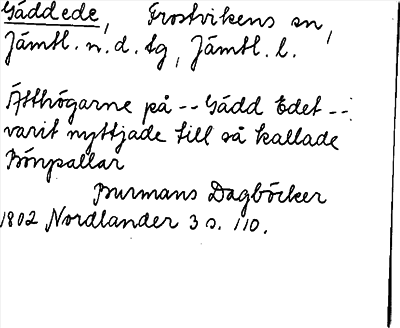 Gäddede, Frostvikens sn,
Jämtl. n. d. tg, Jämtl. l.
Ätthögarne på -- Gädd Edet --
varit nyttjade till så kallade
Bönpallar
Burmans Dagböcker
1802 Nordlander 3 s. 110.